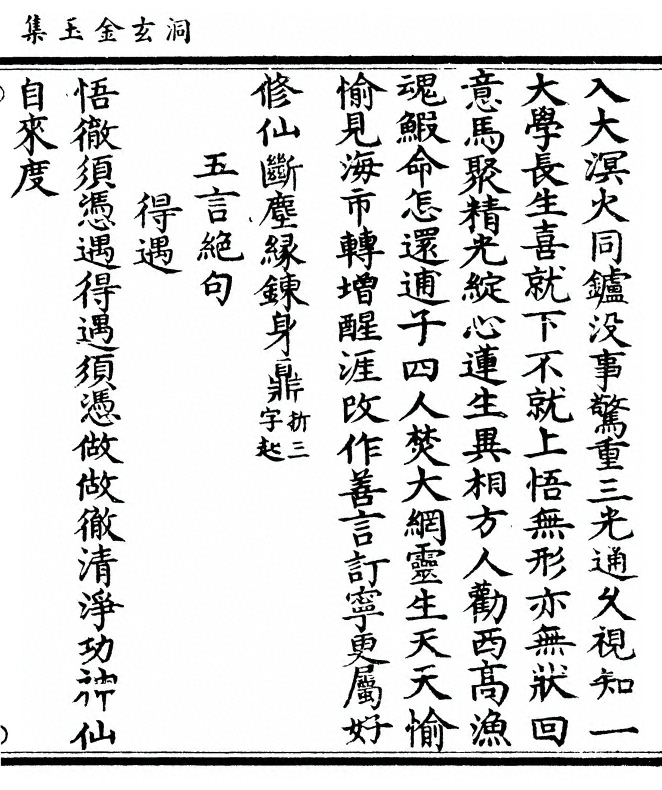 洞玄金玉集
入大溟火同鑪没事驚重三光通久視知一
大學長生喜就下不就上悟無形亦無狀回
意馬聚精光綻心蓮生異相方人勸西髙漁
魂鰕命怎還逋子四人焚大網靈生天天愉
愉見海市轉增醒涯改作善言訂寧更屬好
修仙斷塵緣鍊身鼎折三字起
五言絕句
得遇
悟徹須憑遇得遇須憑做做徹清淨功神仙
自來度